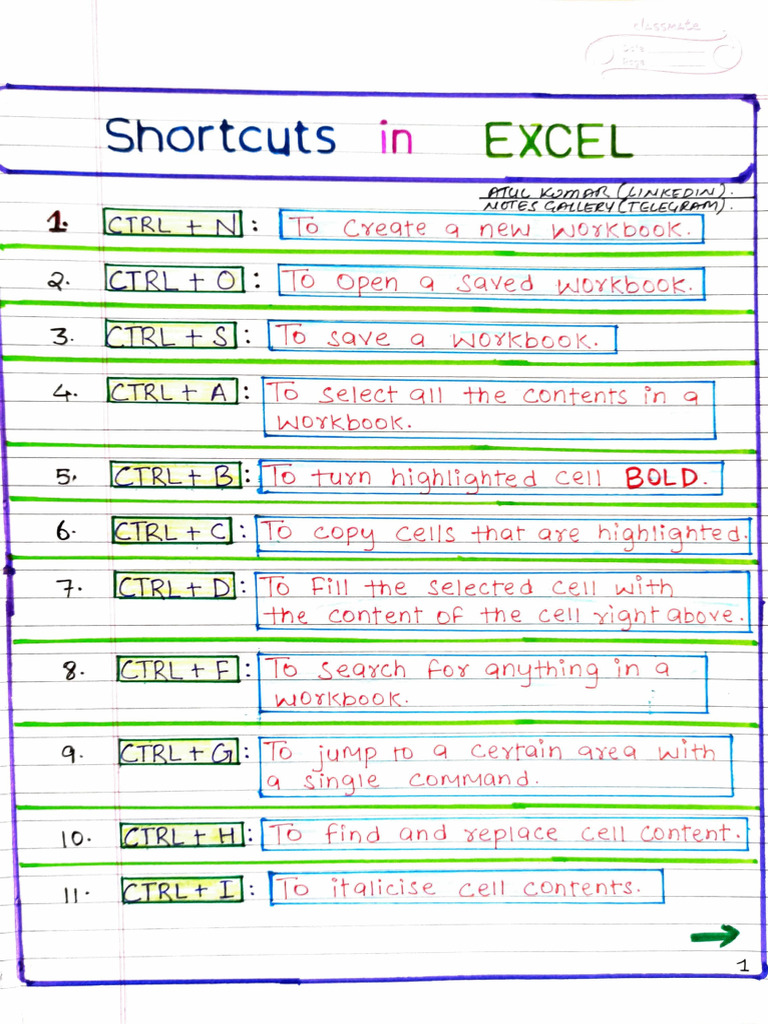 classmate
Date
Page
Shortcuts in EXCEL
ATUL KUMAR (LINKEDIN).
NOTES GALLERY (TELEGRAM).
1. CTRL + N : To Create a new workbook.
2. CTRL + O : To Open a saved workbook.
3. CTRL + S : To save a workbook.
4. CTRL + A : To select all the contents in a
workbook.
5. CTRL + B : To turn highlighted cell BOLD.
6. CTRL + C : To copy cells that are highlighted.
7. CTRL + D : To Fill the selected cell with
the content of the cell right above.
8. CTRL + F : To search for anything in a
workbook.
9. CTRL + G : To jump to a certain area with
a single command.
10. CTRL + H : To find and replace cell content.
11. CTRL + I : To italicise cell contents.
1